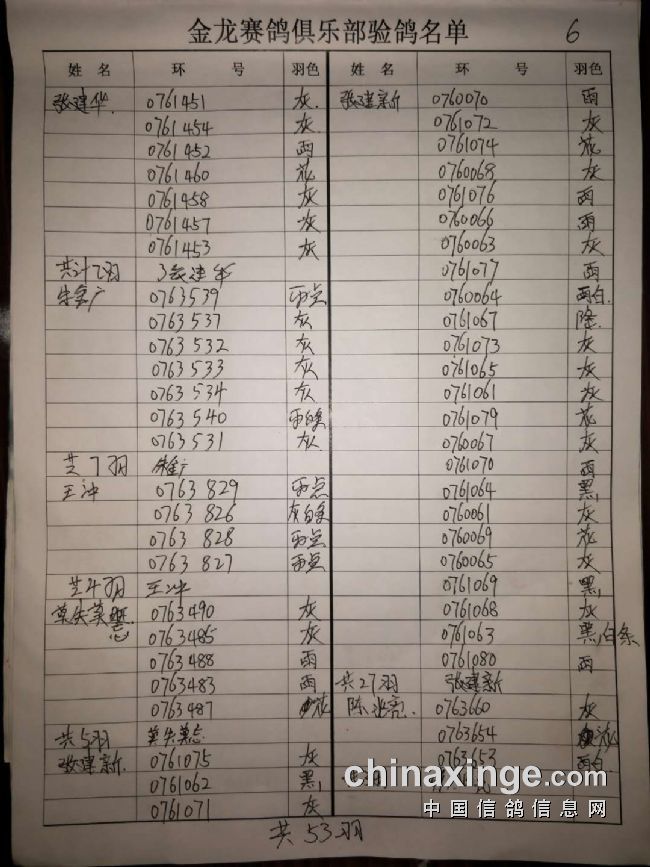 金龙赛鸽俱乐部验鸽名单
6
姓 名 环 号 羽色
张建华 0761451 灰
0761454 灰
0761452 雨
0761460 花
0761458 灰
0761457 灰
0761453 灰
共计7羽 张建华
0763539 雨点
0763537 灰
0763532 灰
0763533 灰
0763534 灰
0763540 雨白条
0763531 灰
共7羽
王冲 0763829 雨点
0763826 灰白条
0763828 雨点
0763827 雨点
共4羽 王冲
0763490 灰
0763485 灰
0763488 雨
0763483 雨
0763487 花
共5羽
张建新 0761075 灰
0761062 黑
0761071 灰
姓 名 环 号 羽色
张建新 0760070 雨
0761072 灰
0761074 花
0760068 灰
0761076 雨
0760066 雨
0760063 灰
0761077 雨
0760064 雨白
0761067 隆
0761073 灰
0761065 灰
0761061 灰
0761079 花
0760067 灰
0761070 雨
0761064 黑
0760061 灰
0760069 花
0760065 灰
0761069 黑
0761068 灰
0761063 黑白条
0761080 雨
共27羽 张建新
陈兆亮 0763660 灰
0763654 花
0763653 雨白
共53羽
chinaxinge.com
中国信鸽信息网